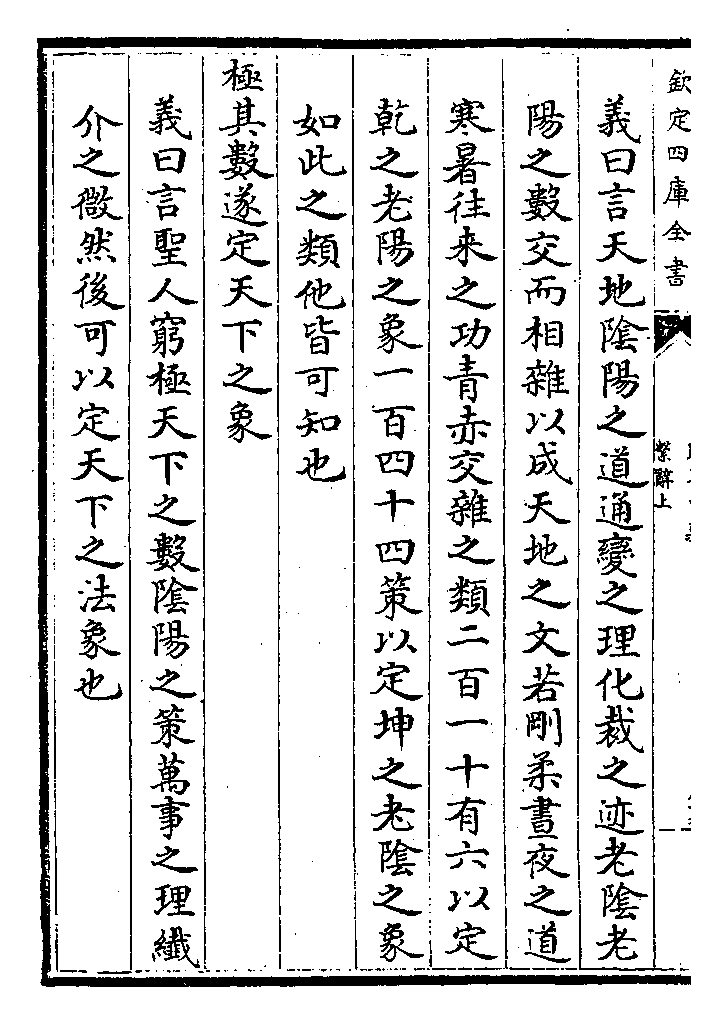 欽定四庫全書
繫辭上
義曰言天地隂陽之道通變之理化裁之迹老隂老
陽之數交而相雜以成天地之文若剛柔晝夜之道
寒暑往来之功青赤交雜之類二百一十有六以定
乾之老陽之象一百四十四策以定坤之老隂之象
如此之類他皆可知也
極其數遂定天下之象
義曰言聖人窮極天下之數隂陽之策萬事之理纎
介之㣲然後可以定天下之法象也